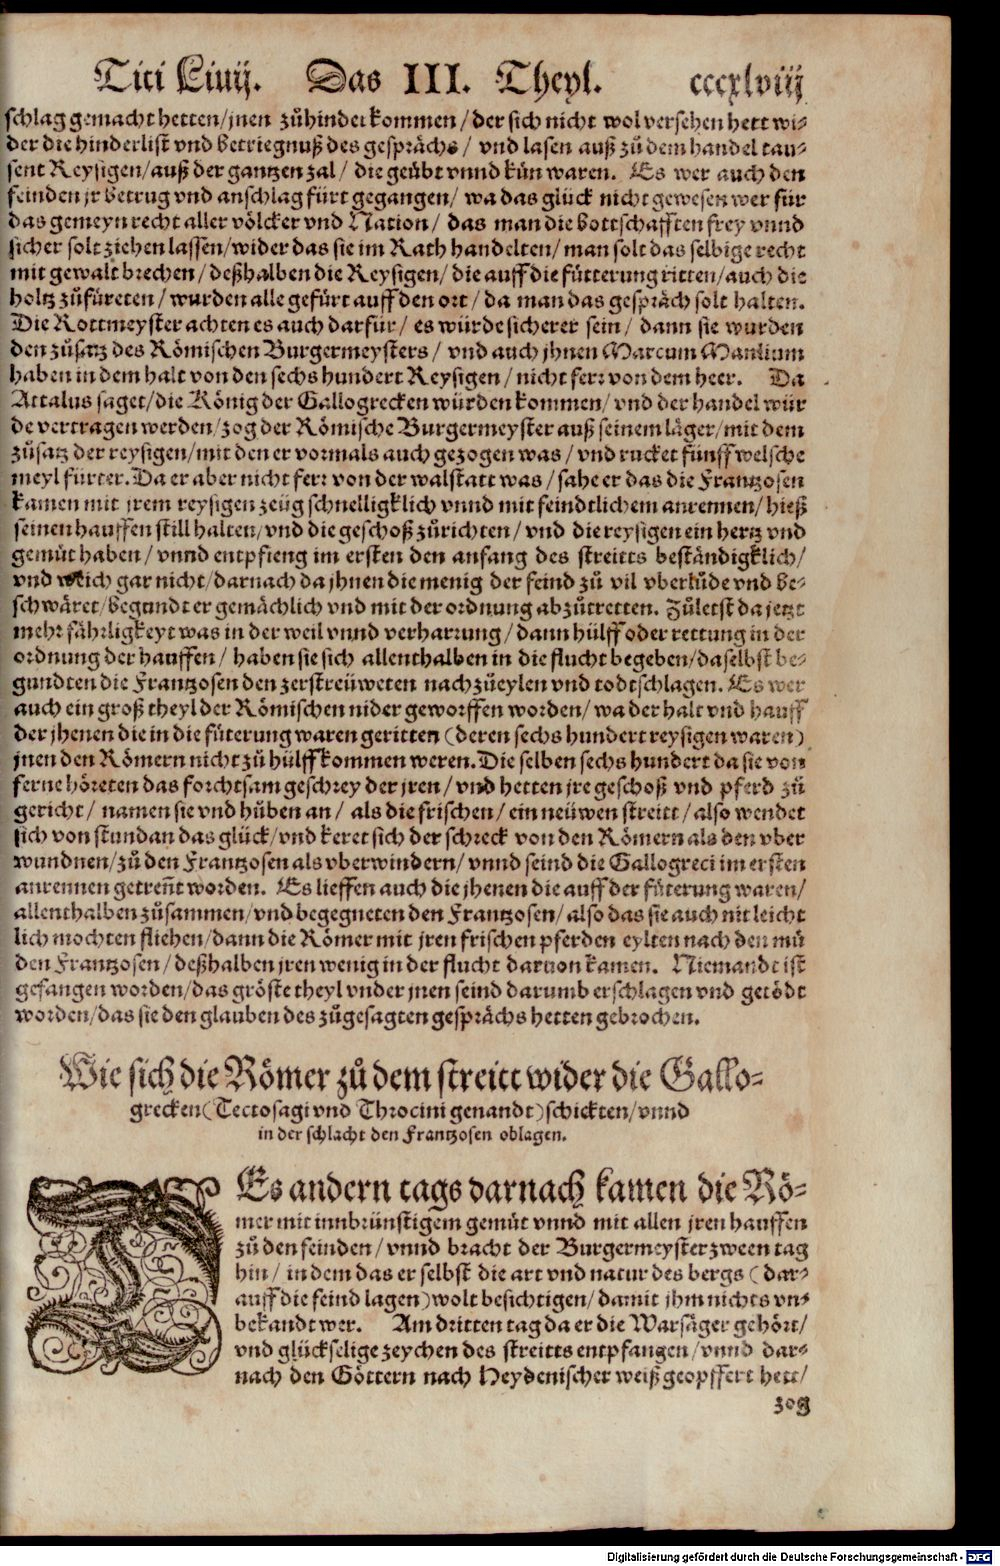 Titi Liuij. Das III. Theyl. cccxlviij
schlag gemacht hetten/jnen zůhinder kommen/der sich nicht wol versehen hett wi-
der die hinderlist vnd betriegnuß des gesprächs/ vnd lasen auß zů dem handel tau-
sent Reysigen/auß der gantzen zal/ die geübt vnnd kün waren. Es wer auch den
feinden jr betrug vnd anschlag fürt gegangen/ wa das glück nicht gewesen wer für
das gemeyn recht aller völcker vnd Nation/ das man die bottschafften frey vnnd
sicher solt ziehen lassen/wider das sie im Rath handelten/man solt das selbige recht
mit gewalt brechen/deßhalben die Reysigen/die auff die fütterung ritten/auch die
holtz zůfüreten/wurden alle gefürt auff den ort/da man das gespräch solt halten.
Die Rottmeyster achten es auch darfür/ es würde sicherer sein/ dann sie wurden
den zůsatz des Römischen Burgermeysters/ vnd auch jhnen Marcum Manlium
haben in dem halt von den sechs hundert Reysigen/nicht ferr von dem heer. Da
Attalus saget/die König der Gallogrecken würden kommen/vnd der handel wür
de vertragen werden/zog der Römische Burgermeyster auß seinem läger/mit dem
zůsatz der reysigen/mit den er vormals auch gezogen was/vnd rucket fünff welsche
meyl fürter. Da er aber nicht ferr von der walstatt was/sahe er das die Frantzosen
kamen mit jrem reysigen zeüg schnelligklich vnnd mit feindtlichem anrennen/hieß
seinen hauffen still halten/vnd die geschoß zůrichten/ vnd die reysigen ein hertz vnd
gemüt haben/ vnnd entpfieng im ersten den anfang des streitts beständigklich/
vnd weich gar nicht/darnach da jhnen die menig der feind zů vil vberlüde vnd be-
schwäret/begundt er gemächlich vnd mit der ordnung abzůtretten. Zůletst da jetzt
mehr fährligkeyt was in der weil vnnd verharrung/dann hülff oder rettung in der
ordnung der hauffen/ haben sie sich allenthalben in die flucht begeben/daselbst be-
gundten die Frantzosen den zerstreüweten nach zůeylen vnd todtschlagen. Es wer
auch ein groß theyl der Römischen nider geworffen worden/wa der halt vnd hauff
der jhenen die in die fůterung waren geritten (deren sechs hundert reysigen waren)
jnen den Römern nicht zů hülff kommen weren. Die selben sechs hundert da sie von
ferne höreten das forchtsam geschrey der jren/vnd hetten jre geschoß vnd pferd zů
gericht/ namen sie vnd hůben an/ als die frischen/ein neüwen streitt/also wendet
sich von stundan das glück/vnd keret sich der schreck von den Römern als den vber
wundnen/zů den Frantzosen als vberwindern/vnnd seind die Gallogreci im ersten
anrennen getreñt worden. Es lieffen auch die jhenen die auff der fůterung waren/
allenthalben zůsammen/vnd begegneten den Frantzosen/also das sie auch nit leicht
lich mochten fliehen/dann die Römer mit jren frischen pferden eylten nach den mü
den Frantzosen/deßhalben jren wenig in der flucht daruon kamen. Niemandt ist
gefangen worden/das gröste theyl vnder jnen seind darumb erschlagen vnd getödt
worden/das sie den glauben des zůgesagten gesprächs hetten gebrochen.
Wie sich die Römer zů dem streitt wider die Gallo-
grecken (Tectosagi vnd Throcini genandt) schickten/vnnd
in der schlacht den Frantzosen oblagen.
DEs andern tags darnach kamen die Rö-
mer mit innbrünstigem gemüt vnnd mit allen jren hauffen
zů den feinden/vnnd bracht der Burgermeyster zween tag
hin/ in dem das er selbst die art vnd natur des bergs (dar-
auff die feind lagen) wolt besichtigen/damit jhm nichts vn-
bekandt wer. Am dritten tag da er die Warsäger gehört/
vnd glückselige zeychen des streitts entpfangen/vnnd dar-
nach den Göttern nach Heydenischer weiß geopffert hett/
zog
Digitalisierung gefördert durch die Deutsche Forschungsgemeinschaft - DFG